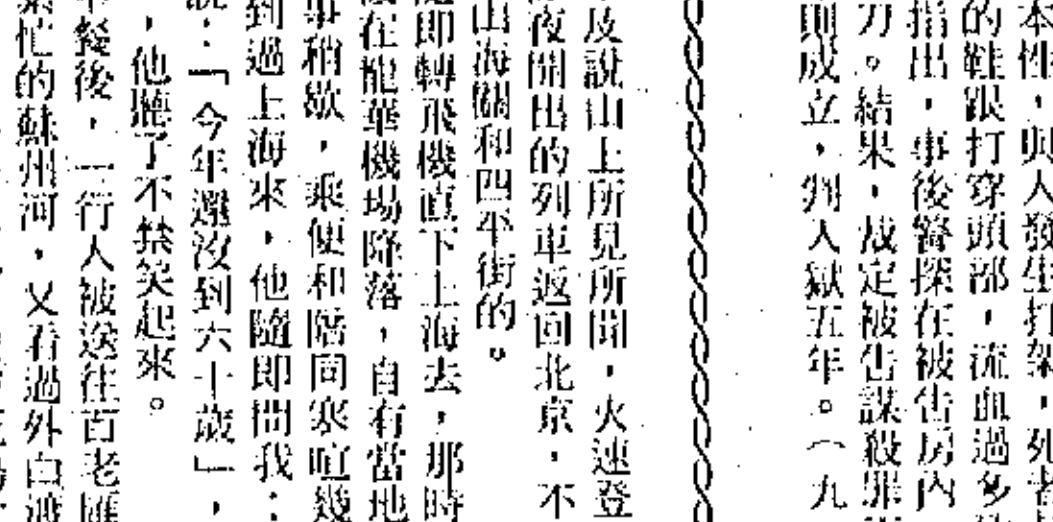 本性，與人發生打架，死者
的鞋跟打穿頭部，流血過多
指出，事後警探在被告房內
刀。結果，裁定被告謀殺罪
則成立，判入獄五年。（九
及說山上所見所聞，火速登
夜開出的列車返回北京，不
山海關和四平街的。
隨即轉飛機直下上海去，那時
在龍華機場降落，自有當地
事稍歇，乘便和階同寒暄幾
到過上海來，他隨即問我：
：「今年還沒到六十歲」，
，他聽了不禁笑起來。
餐後，一行人被送往百老匯
繁忙的蘇州河，又看過外白渡